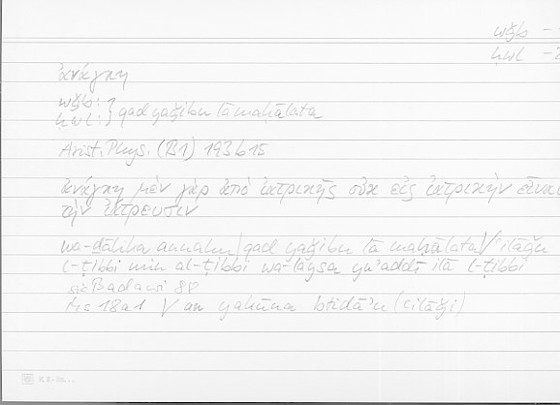 wǧb –
ḥwl –
ἀνάγκη
wǧb: }
ḥwl: } qad yaǧibu lā maḥālata
Arist. Phys. (B1) 193b15
ἀνάγκη μὲν γὰρ ἀπὸ ἰατρικῆς οὐκ εἰς ἰατρικὴν εἶναι
τὴν ἰάτρευσιν
wa-ḏālika annahū qad yaǧibu lā maḥālata / ʿilāǧu
l-ṭibbi min al-ṭibbi wa-laysa yuʾaddī ilā l-ṭibbi
sic Badawi 88
18a1 V an yakūna btidāʾu (ʿilāǧi)